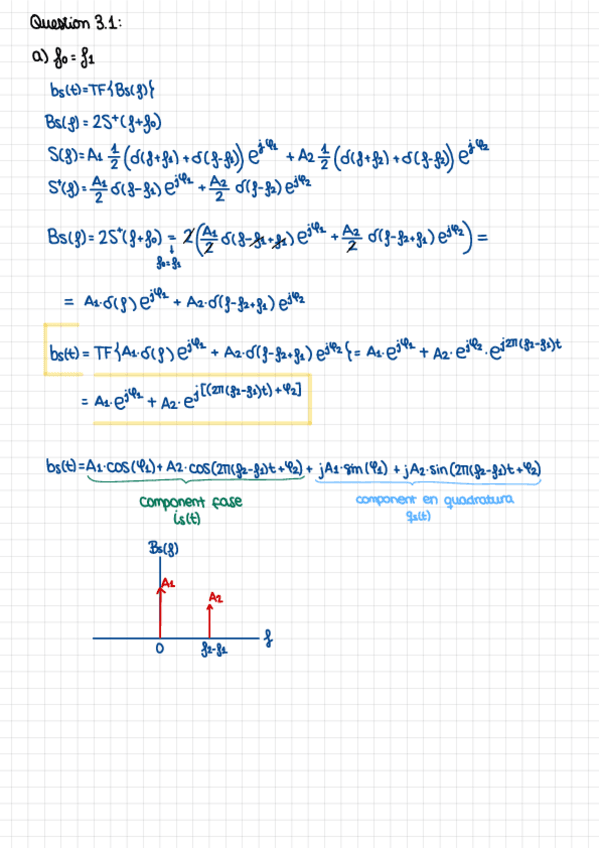 Question 3.1:
a) f₀ = f₁
bs(t) = TF{Bs(f)}
Bs(f) = 2S⁺(f+f₀)
S(f) = A₁ 1/2 (δ(f+f₁) + δ(f-f₁)) e^jφ₁ + A₂ 1/2 (δ(f+f₂) + δ(f-f₂)) e^jφ₂
S⁺(f) = A₁/2 δ(f-f₁) e^jφ₁ + A₂/2 δ(f-f₂) e^jφ₂
Bs(f) = 2S⁺(f+f₀) = 2(A₁/2 δ(f-f₁+f₁) e^jφ₁ + A₂/2 δ(f-f₂+f₁) e^jφ₂) =
↓
f₀=f₁
= A₁·δ(f) e^jφ₁ + A₂·δ(f-f₂+f₁) e^jφ₂
bs(t) = TF{A₁·δ(f) e^jφ₁ + A₂·δ(f-f₂+f₁) e^jφ₂{ = A₁·e^jφ₁ + A₂·e^jφ₂·e^j2π(f₂-f₁)t
= A₁·e^jφ₁ + A₂·e^j[(2π(f₂-f₁)t)+φ₂]
bs(t) = A₁·cos(φ₁) + A₂·cos(2π(f₂-f₁)t+φ₂) + jA₁·sin(φ₁) + jA₂·sin(2π(f₂-f₁)t+φ₂)
component fase
is(t)
component en quadratura
qs(t)
Bs(f)
A₁
A₂
f
0
f₂-f₁